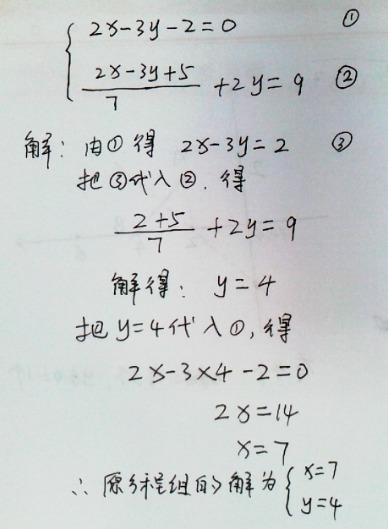 2x-3y-2=0 ①
2x-3y+5
7
+2y=9 ②
解:由①得 2x-3y=2 ③
把③代入②,得
2+5
7
+2y=9
解得: y=4
把y=4代入①,得
2x-3×4-2=0
2x=14
x=7
∴原方程组的解为{x=7
y=4